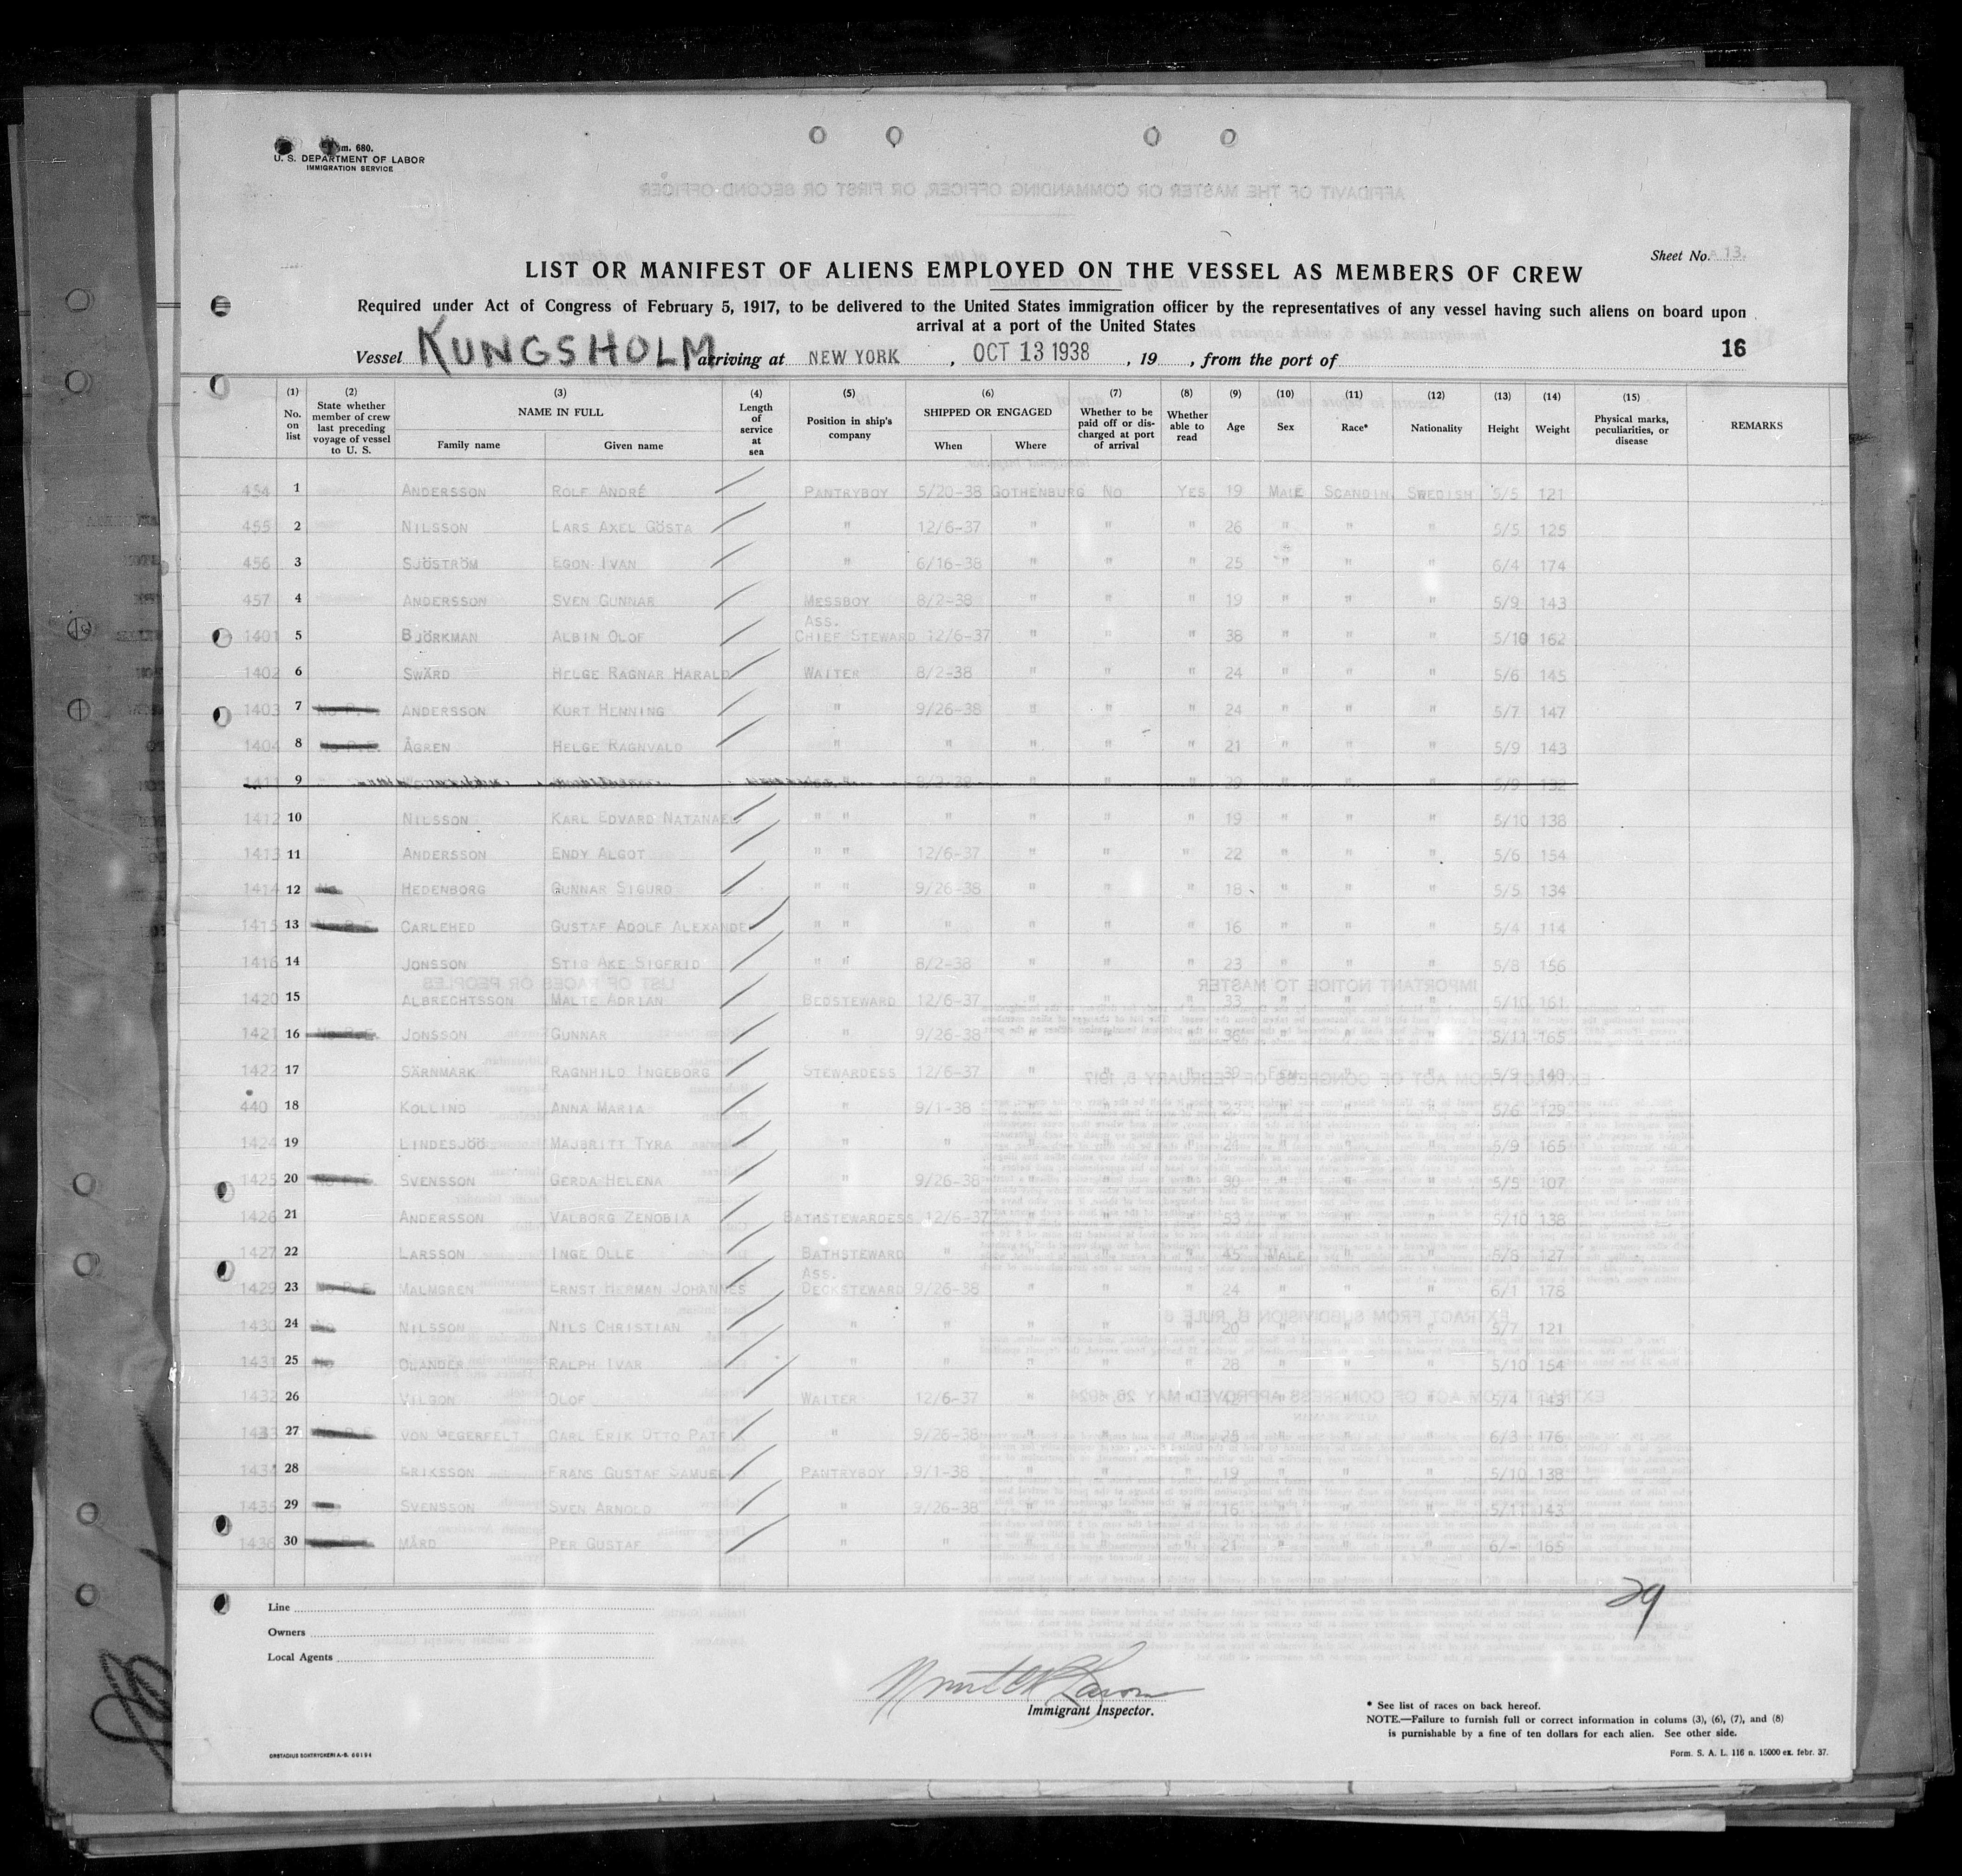 Form. 680.
U. S. DEPARTMENT OF LABOR
IMMIGRATION SERVICE
Sheet No. A 13.
LIST OR MANIFEST OF ALIENS EMPLOYED ON THE VESSEL AS MEMBERS OF CREW
Required under Act of Congress of February 5, 1917, to be delivered to the United States immigration officer by the representatives of any vessel having such aliens on board upon
arrival at a port of the United States
Vessel KUNGSHOLM arriving at NEW YORK , OCT 13 1938 , 19 , from the port of 16
(1) (2) (3) (4) (5) (6) (7) (8) (9) (10) (11) (12) (13) (14) (15)
No. on list State whether member of crew last preceding voyage of vessel to U. S. NAME IN FULL Family name Given name Length of service at sea Position in ship's company SHIPPED OR ENGAGED When Where Whether to be paid off or discharged at port of arrival Whether able to read Age Sex Race* Nationality Height Weight Physical marks, peculiarities, or disease REMARKS
454 1 ANDERSSON ROLF ANDRÉ PANTRYBOY 5/20-38 GOTHENBURG NO YES 19 MALE SCANDIN. SWEDISH 5/5 121
455 2 NILSSON LARS AXEL GÖSTA " 12/6-37 " " " 26 " " " 5/5 125
456 3 SJÖSTRÖM EGON IVAN " 6/16-38 " " " 25 " " " 6/4 174
457 4 ANDERSSON SVEN GUNNAR MESSBOY 8/2-38 " " " 19 " " " 5/9 143
1401 5 BJÖRKMAN ALBIN OLOF ASS. CHIEF STEWARD 12/6-37 " " " 38 " " " 5/10 162
1402 6 SWÄRD HELGE RAGNAR HARALD WAITER 8/2-38 " " " 24 " " " 5/6 145
1403 7 NO P.E. ANDERSSON KURT HENNING " 9/26-38 " " " 24 " " " 5/7 147
1404 8 NO P.E. ÅGREN HELGE RAGNVALD " " " " " 21 " " " 5/9 143
1411 9 " 8/2-38 " " " " " " 5/9 132
1412 10 NILSSON KARL EDVARD NATANAEL " " " " " " 19 " " " 5/10 138
1413 11 ANDERSSON ENDY ALGOT " " 12/6-37 " " " 22 " " " 5/6 154
1414 12 NO HEDENBORG GUNNAR SIGURD " " 9/26-38 " " " 18 " " " 5/5 134
1415 13 NO P.E. CARLEHED GUSTAF ADOLF ALEXANDE " " " " " " 16 " " " 5/4 114
1416 14 JONSSON STIG ÅKE SIGFRID " " 8/2-38 " " " 23 " " " 5/8 156
1420 15 ALBRECHTSSON MALTE ADRIAN BEDSTEWARD 12/6-37 " " " 33 " " " 5/10 161
1421 16 NO P.E. JONSSON GUNNAR " 9/26-38 " " " 36 " " " 5/11 165
1422 17 SÄRNMARK RAGNHILD INGEBORG STEWARDESS 12/6-37 " " " 39 FEM. " " 5/9 140
440 18 KOLLIND ANNA MARIA " 9/1-38 " " " 23 " " " 5/6 129
1424 19 LINDESJÖÖ MAJBRITT TYRA " " " " " " " " 5/9 165
1425 20 NO P.E. SVENSSON GERDA HELENA " 9/26-38 " " " 30 " " " 5/5 107
1426 21 ANDERSSON VALBORG ZENOBIA BATHSTEWARDESS 12/6-37 " " " 53 " " " 5/10 138
1427 22 LARSSON INGE OLLE BATHSTEWARD " " " " 45 MALE " " 5/8 127
1429 23 NO P.E. MALMGREN ERNST HERMAN JOHANNES ASS. DECKSTEWARD 9/26-38 " " " 24 " " " 6/1 178
1430 24 NO NILSSON NILS CHRISTIAN " " " " " 20 " " " 5/7 121
1431 25 NO OLANDER RALPH IVAR " " " " " 28 " " " 5/10 154
1432 26 VILSON OLOF WAITER 12/6-37 " " " " " " 5/4 143
1433 27 NO P.E. VON WEGERFELT CARL ERIK OTTO PATRIK " 9/26-38 " " " 25 " " " 6/3 176
1434 28 ERIKSSON FRANS GUSTAF SAMUEL PANTRYBOY 9/1-38 " " " 19 " " " 5/10 138
1435 29 NO SVENSSON SVEN ARNOLD " 9/26-38 " " " 16 " " " 5/11 143
1436 30 NO P.E. MÅRD PER GUSTAF " " " " " 21 " " " 6/- 165
29
Line
Owners
Local Agents
Immigrant Inspector.
* See list of races on back hereof.
NOTE.—Failure to furnish full or correct information in colums (3), (6), (7), and (8)
is purnishable by a fine of ten dollars for each alien. See other side.
ORSTADIUS BOKTRYCKERI A.-B. 66194
Form. S. A. L. 116 n. 15000 ex. febr. 37.